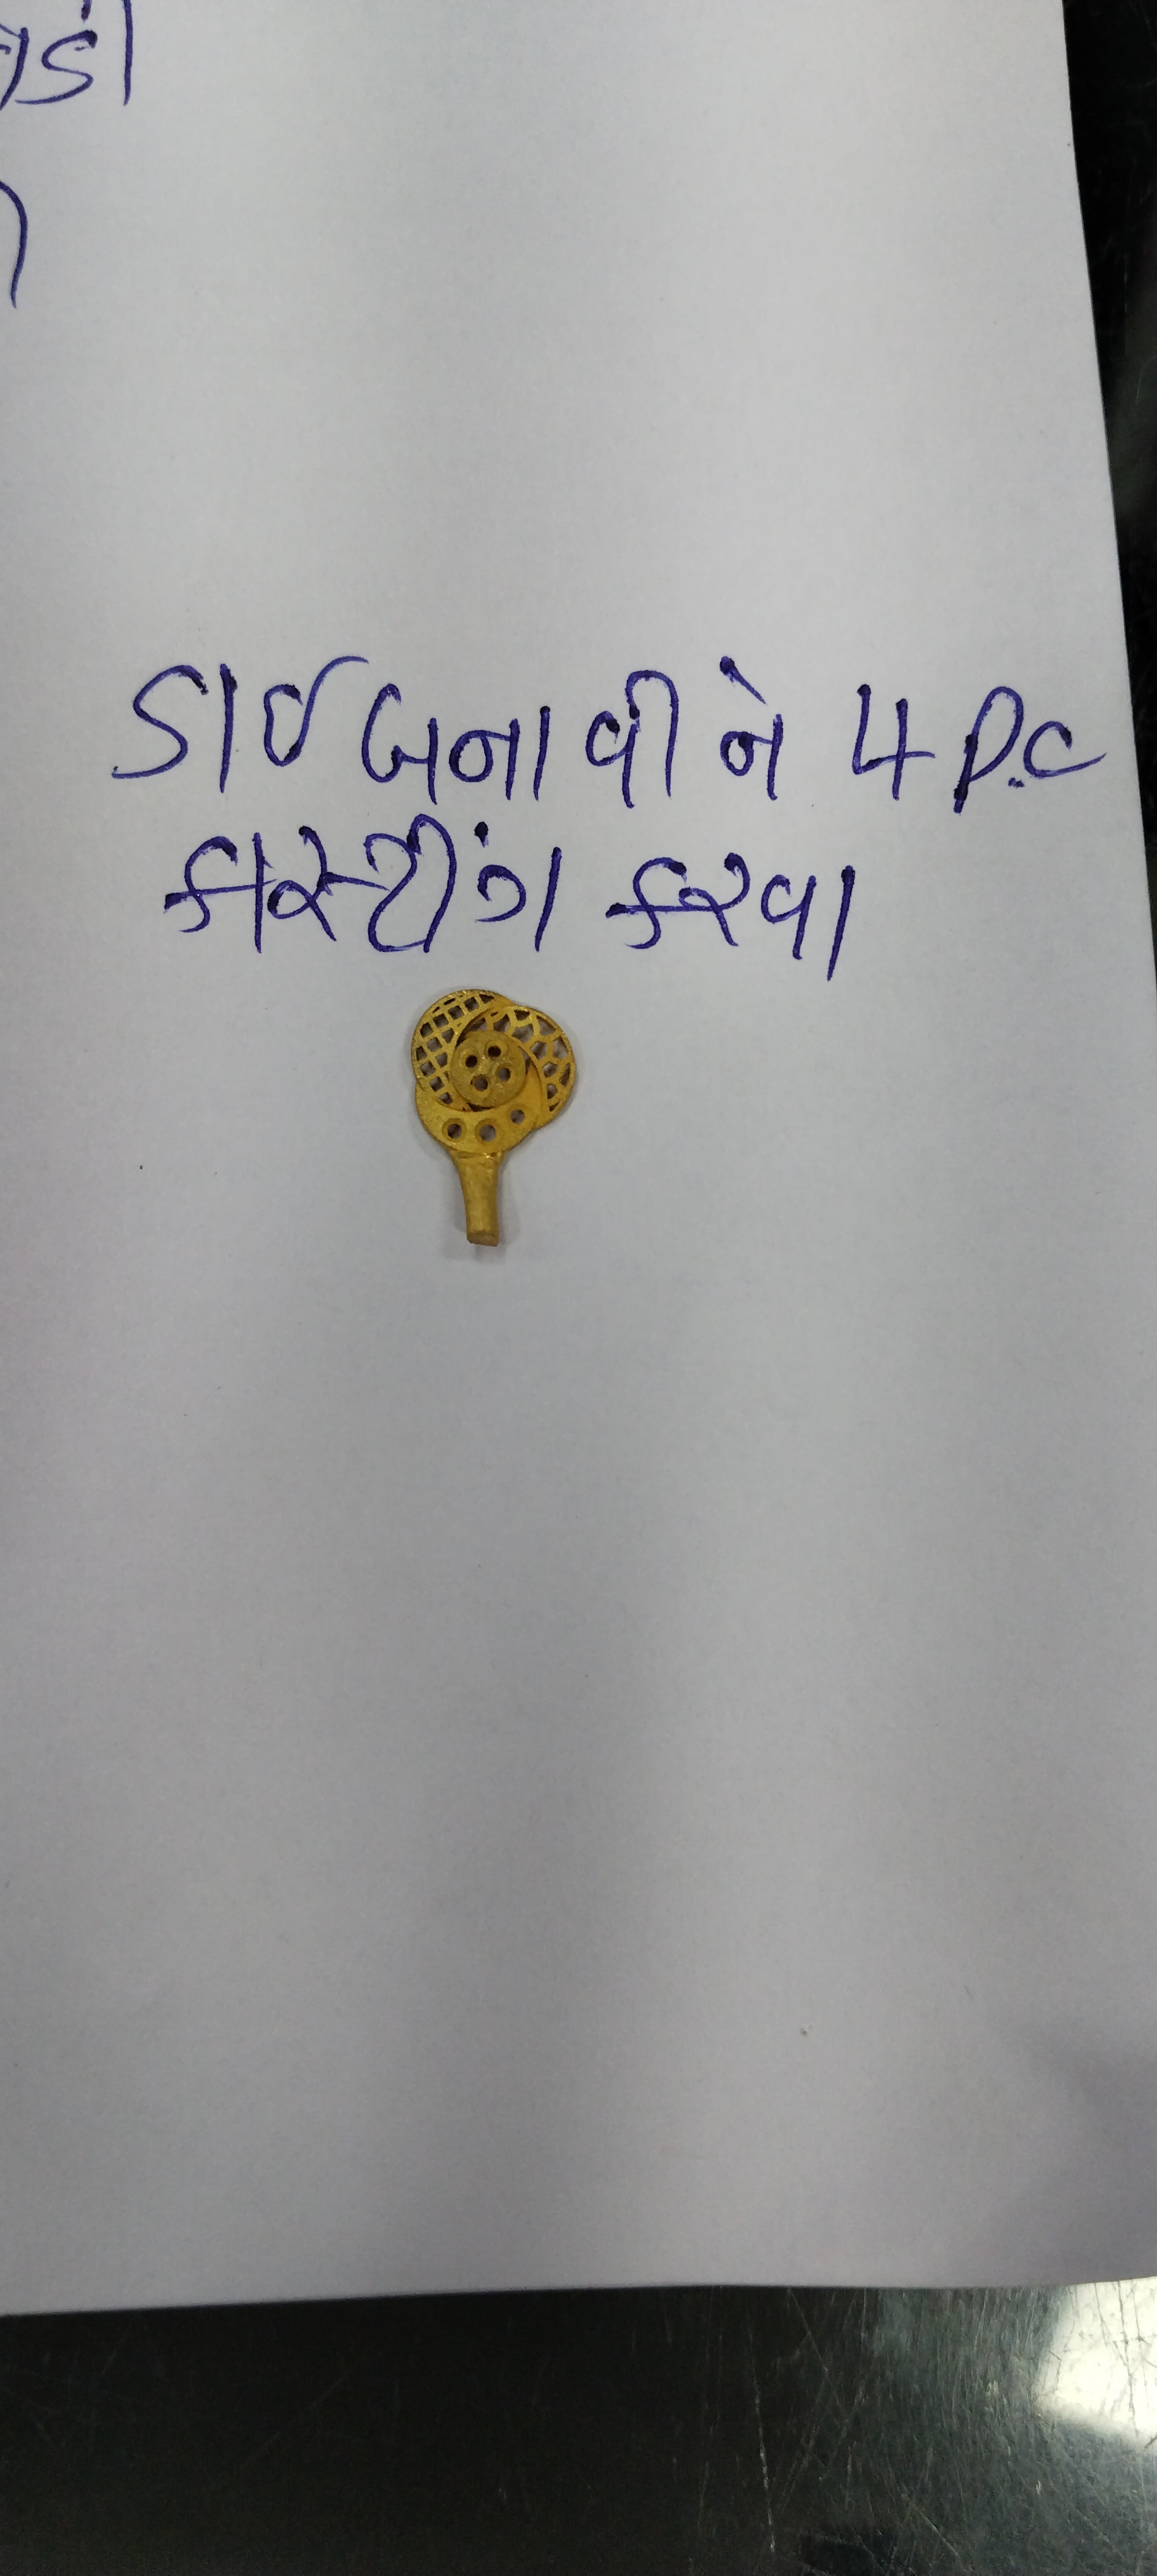 ડાઈ બનાવીને 4 P.C
કાસ્ટીંગ કરવા